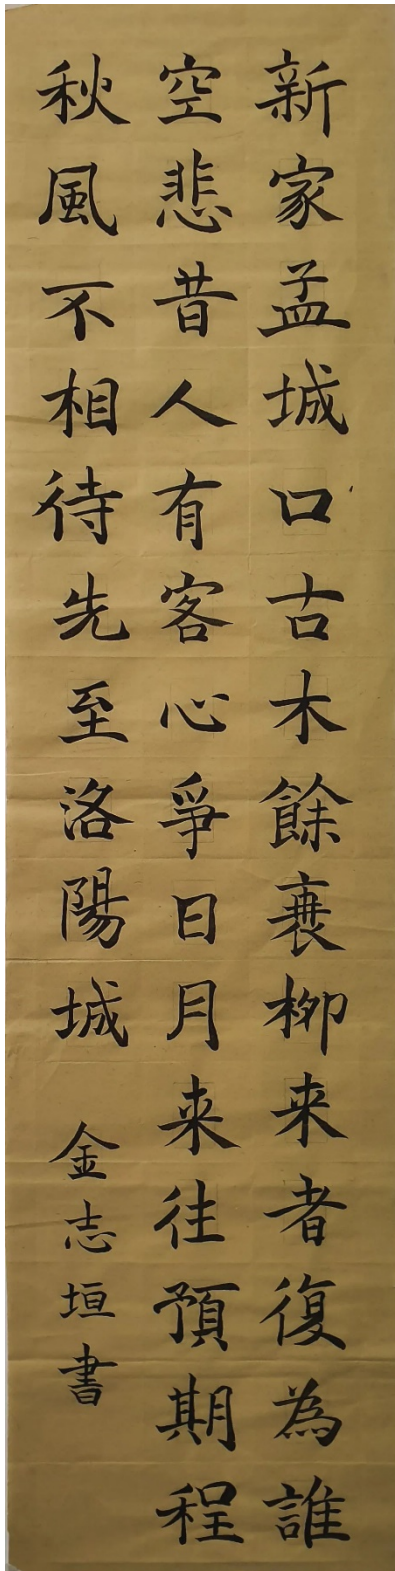 新家孟城口古木餘衰柳来者復為誰
空悲昔人有客心爭日月来往預期程
秋風不相待先至洛陽城
金志垣書